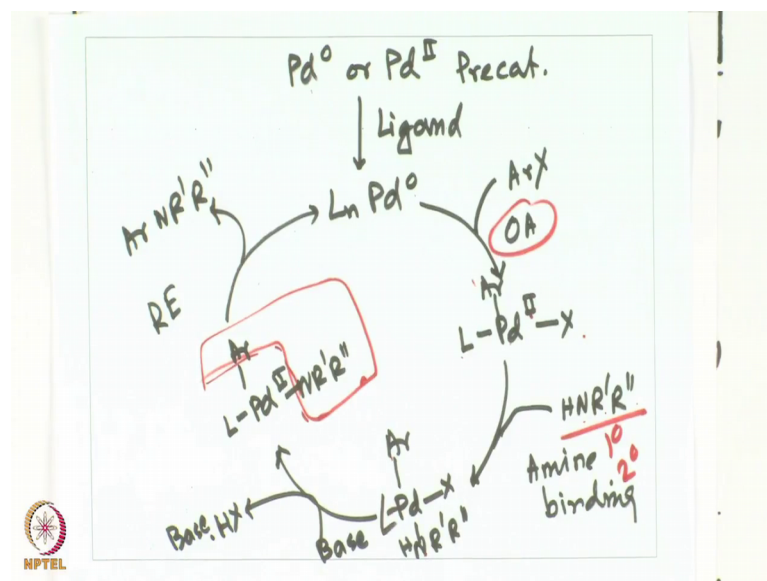 Pd⁰ or Pdᴵᴵ Precat.
Ligand
Ln Pd⁰
ArX
OA
Ar
L-Pdᴵᴵ-X
HNR'R"
1°
2°
Amine
binding
Ar
L-Pd-X
HNR'R"
Base
Base.HX
Ar
L-Pdᴵᴵ-NR'R"
RE
Ar NR'R"
NPTEL